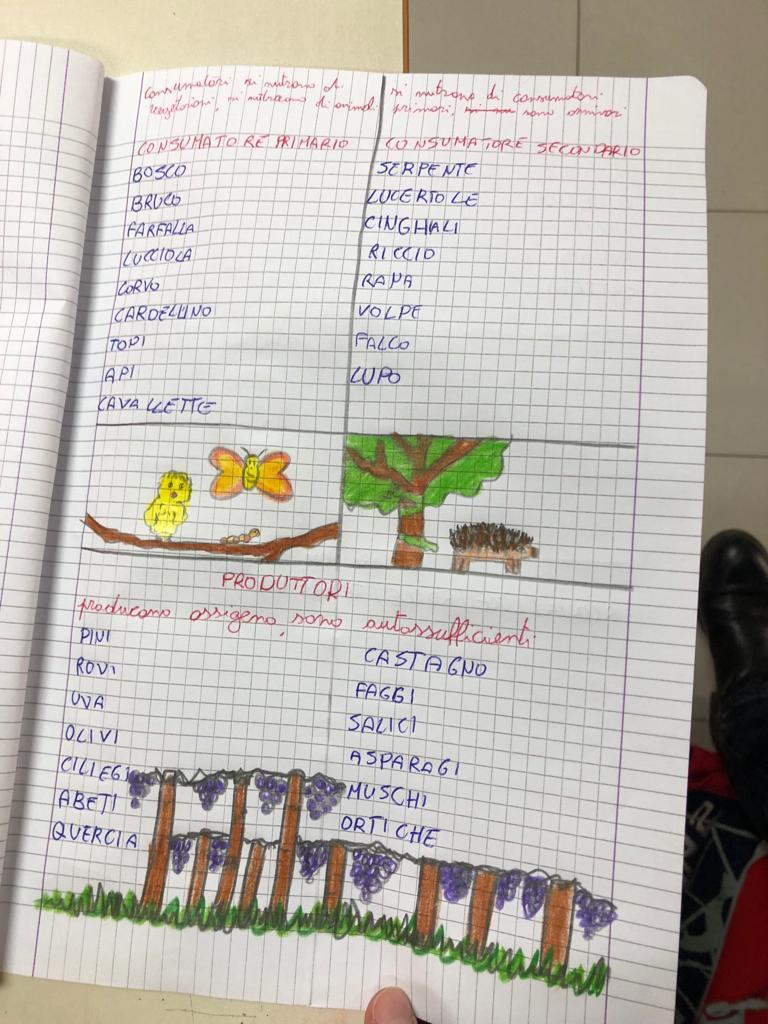 consumatori si nutrono di
vegetazioni, si nutrono di animali
CONSUMATORE PRIMARIO
BOSCO
BRUCO
FARFALLA
LUCCIOLA
CORVO
CARDELLINO
TOPI
API
CAVALLETTE
si nutrono di consumatori
primari, sono onnivori
CONSUMATORE SECONDARIO
SERPENTE
LUCERTOLE
CINGHALI
RICCIO
RANA
VOLPE
FALCO
LUPO
PRODUTTORI
producono ossigeno, sono autossufficienti
PINI
ROVI
UVA
OLIVI
CILIEGI
ABETI
QUERCIA
CASTAGNO
FAGGI
SALICI
ASPARAGI
MUSCHI
ORTICHE